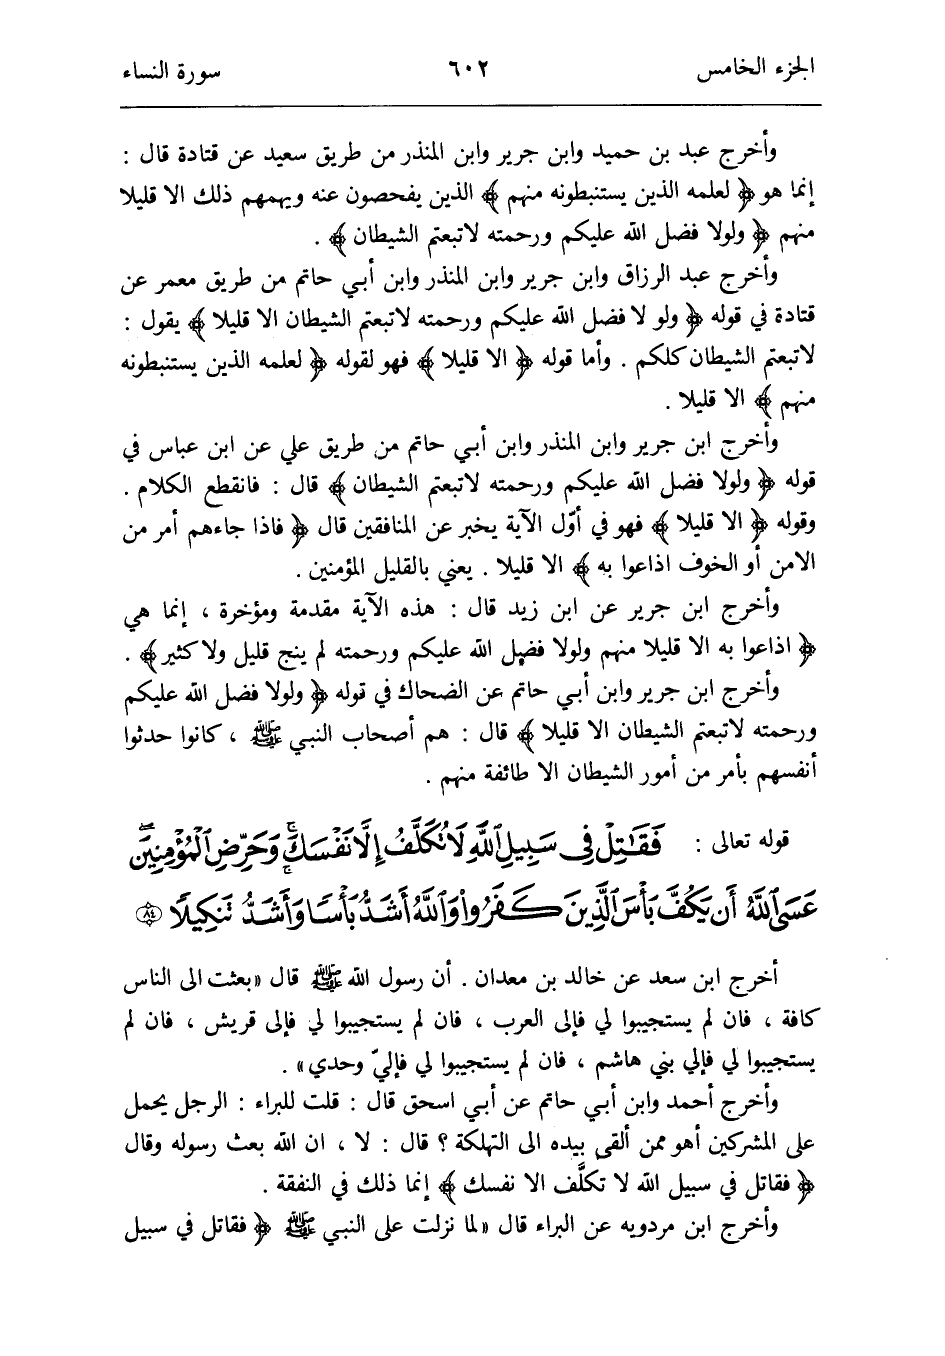 الجزء الخامس ٦٠٢ سورة النساء
وأخرج عبد بن حميد وابن جرير وابن المنذر من طريق سعيد عن قتادة قال :
إنما هو ﴿ لعلمه الذين يستنبطونه منهم ﴾ الذين يفحصون عنه ويهمهم ذلك الا قليلا
منهم ﴿ ولولا فضل الله عليكم ورحمته لاتبعتم الشيطان ﴾ .
وأخرج عبد الرزاق وابن جرير وابن المنذر وابن أبي حاتم من طريق معمر عن
قتادة في قوله ﴿ ولو لا فضل الله عليكم ورحمته لاتبعتم الشيطان الا قليلا ﴾ يقول :
لاتبعتم الشيطان كلكم . وأما قوله ﴿ الا قليلا ﴾ فهو لقوله ﴿ لعلمه الذين يستنبطونه
منهم ﴾ الا قليلا .
وأخرج ابن جرير وابن المنذر وابن أبي حاتم من طريق علي عن ابن عباس في
قوله ﴿ ولولا فضل الله عليكم ورحمته لاتبعتم الشيطان ﴾ قال : فانقطع الكلام .
وقوله ﴿ الا قليلا ﴾ فهو في أوّل الآية يخبر عن المنافقين قال ﴿ فاذا جاءهم أمر من
الامن أو الخوف اذاعوا به ﴾ الا قليلا . يعني بالقليل المؤمنين .
وأخرج ابن جرير عن ابن زيد قال : هذه الآية مقدمة ومؤخرة ، إنما هي
﴿ اذاعوا به الا قليلا منهم ولولا فضل الله عليكم ورحمته لم ينج قليل ولا كثير ﴾ .
وأخرج ابن جرير وابن أبي حاتم عن الضحاك في قوله ﴿ ولولا فضل الله عليكم
ورحمته لاتبعتم الشيطان الا قليلا ﴾ قال : هم أصحاب النبي ﷺ ، كانوا حدثوا
أنفسهم بأمر من أمور الشيطان الا طائفة منهم .
قوله تعالى : فَقَٰتِلْ فِى سَبِيلِ ٱللَّهِ لَا تُكَلَّفُ إِلَّا نَفْسَكَ ۚ وَحَرِّضِ ٱلْمُؤْمِنِينَ ۖ
عَسَى ٱللَّهُ أَن يَكُفَّ بَأْسَ ٱلَّذِينَ كَفَرُوا۟ وَٱللَّهُ أَشَدُّ بَأْسًا وَأَشَدُّ تَنكِيلًا ٨٤
أخرج ابن سعد عن خالد بن معدان . أن رسول الله ﷺ قال «بعثت الى الناس
كافة ، فان لم يستجيبوا لي فإلى العرب ، فان لم يستجيبوا لي فإلى قريش ، فان لم
يستجيبوا لي فإلي بني هاشم ، فان لم يستجيبوا لي فإليّ وحدي» .
وأخرج أحمد وابن أبي حاتم عن أبي اسحق قال : قلت للبراء : الرجل يحمل
على المشركين أهو ممن ألقى بيده الى التهلكة ؟ قال : لا ، ان الله بعث رسوله وقال
﴿ فقاتل في سبيل الله لا تكلَّف الا نفسك ﴾ إنما ذلك في النفقة .
وأخرج ابن مردويه عن البراء قال «لما نزلت على النبي ﷺ ﴿ فقاتل في سبيل